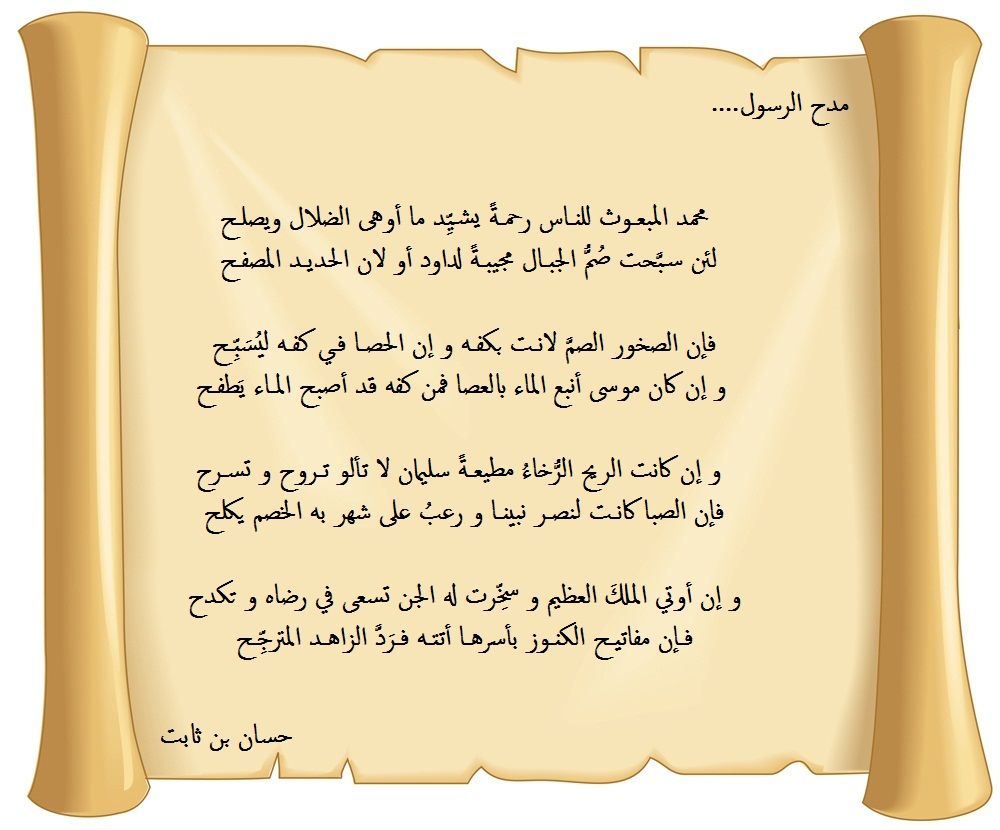 مدح الرسول....
محمد المبعوث للناس رحمةً يشيِّد ما أوهى الضلال ويصلح
لئن سبَّحت صُمُّ الجبال مجيبةً لداود أو لان الحديد المصفح
فإن الصخور الصمَّ لانت بكفه و إن الحصا في كفه ليُسَبِّح
و إن كان موسى أنبع الماء بالعصا فمن كفه قد أصبح الماء يَطفح
و إن كانت الريح الرُّخاءُ مطيعةً سليمان لا تألو تروح و تسرح
فإن الصبا كانت لنصر نبينا و رعبُ على شهر به الخصم يكلح
و إن أوتي الملكَ العظيم و سخِّرت له الجن تسعى في رضاه و تكدح
فإن مفاتيح الكنوز بأسرها أتته فرَدَّ الزاهد المترجِّح
حسان بن ثابت